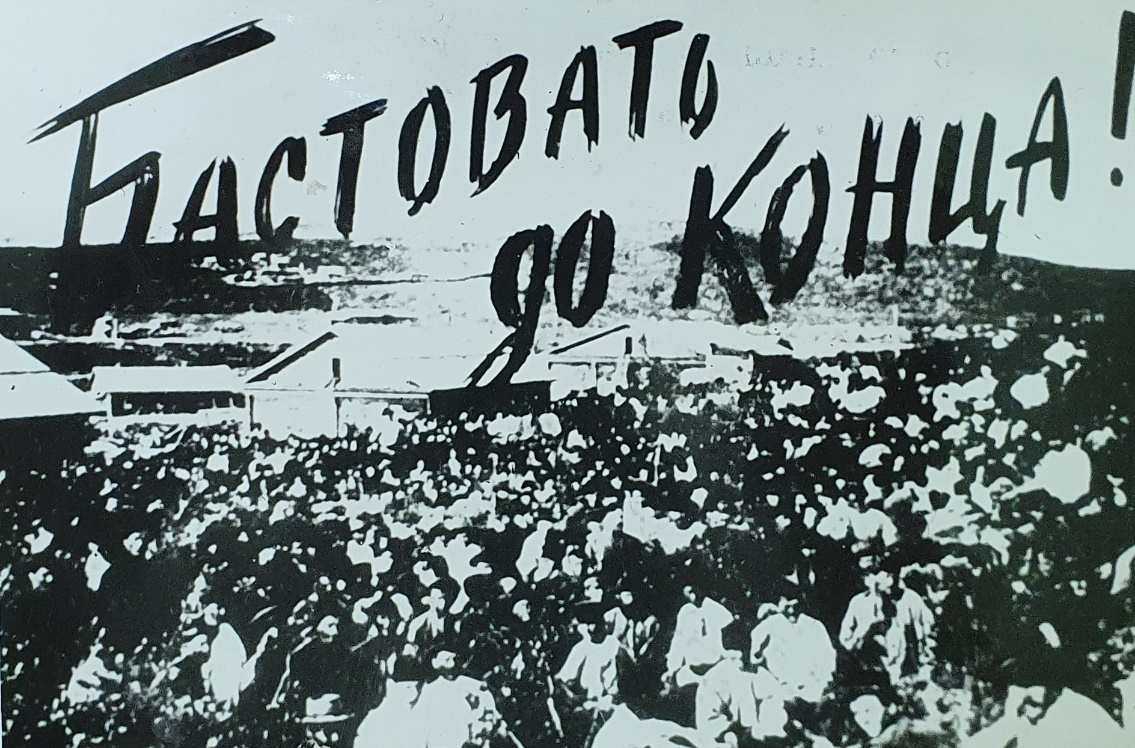 БАСТОВАТЬ
до КОНЦА!